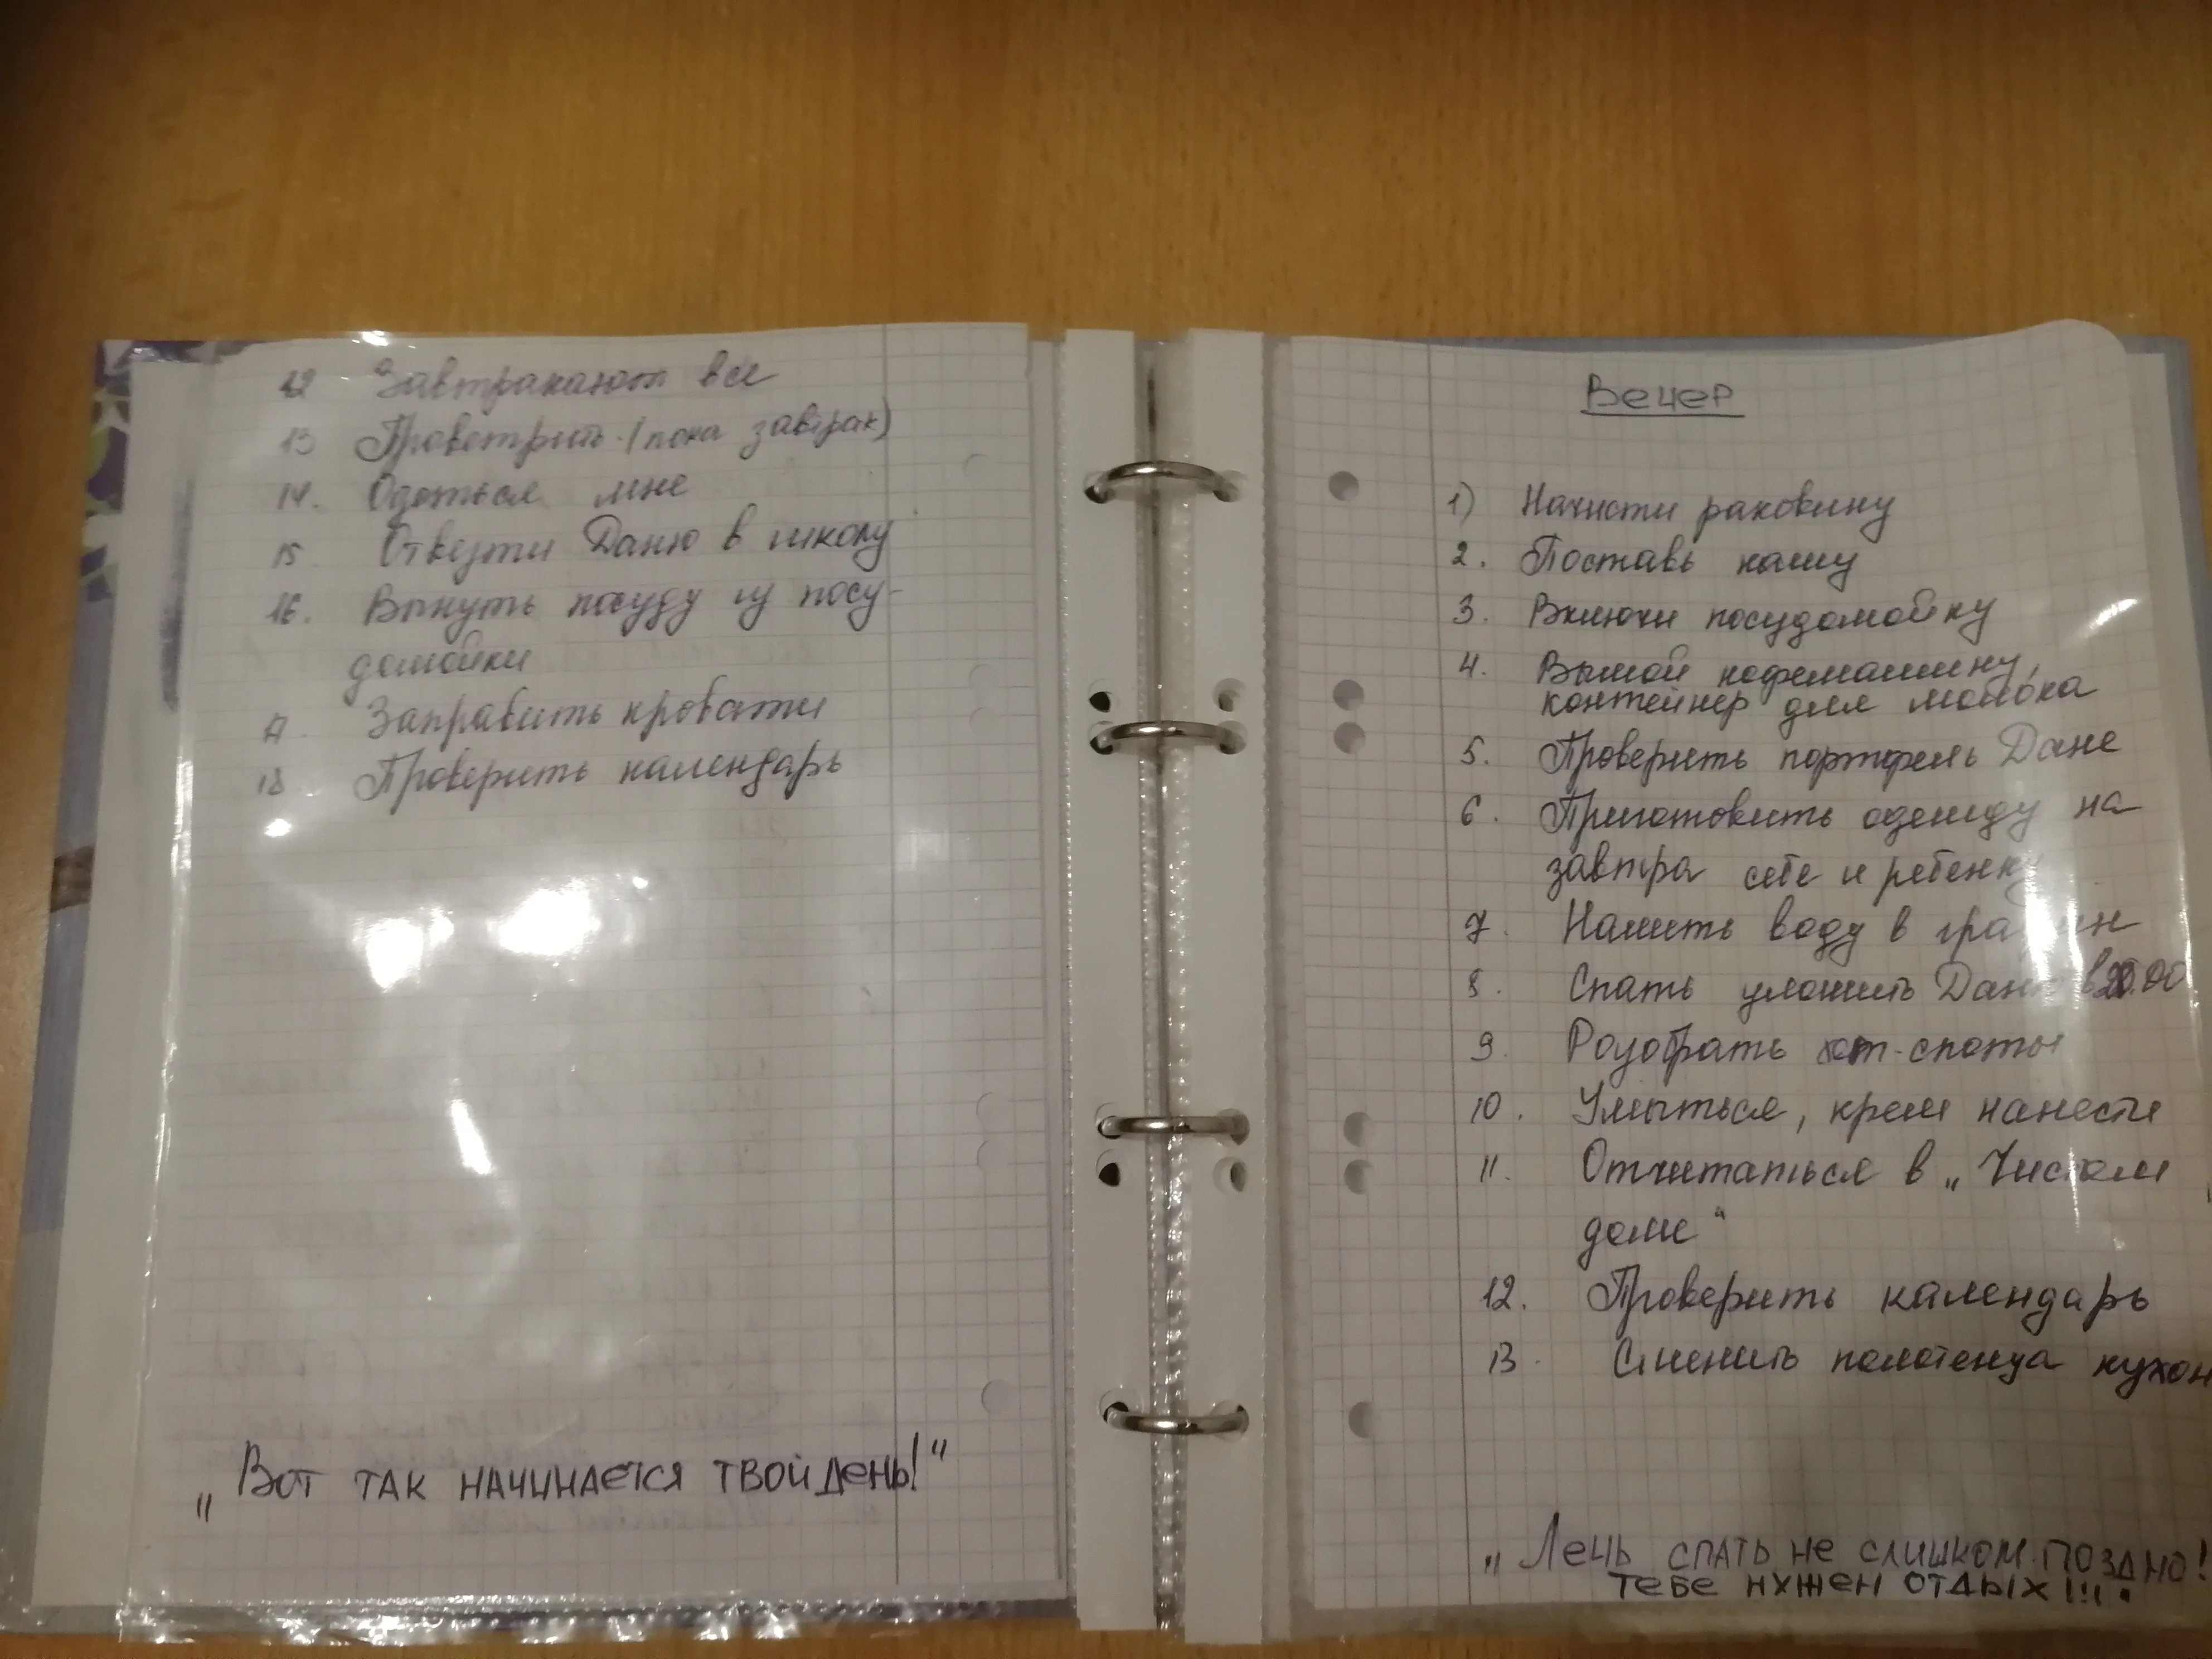 12 Завтракают все
13 Проветрить (пока завтрак)
14. Одеться мне
15 Отвезти Даню в школу
16. Вынуть посуду из посу-
домойки
17. Заправить кровати
18. Проверить календарь
„Вот так начинается твой день!“
Вечер
1) Начисти раковину
2. Поставь кашу
3. Включи посудомойку
4. Вымой кофемашину,
контейнер для молока
5. Проверить портфель Дане
6. Приготовить одежду на
завтра себе и ребенку
7. Налить воду в графин
8. Спать уложить Даню в 20.00
9. Разобрать хот-споты
10. Умыться, крем нанести
11. Отчитаться в „Чистом
доме“
12. Проверить календарь
13. Сменить полотенца кухон
„Лечь спать не слишком поздно!
тебе нужен отдых!!!